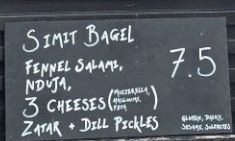 SIMIT BAGEL
FENNEL SALAMI,
NDUJA,
3 CHEESES (MOZZERELLA, HALLOUMI, FETA)
ZATAR + DILL PICKLES
7.5
GLUTEN, DAIRY,
SESAME, SULPHITES